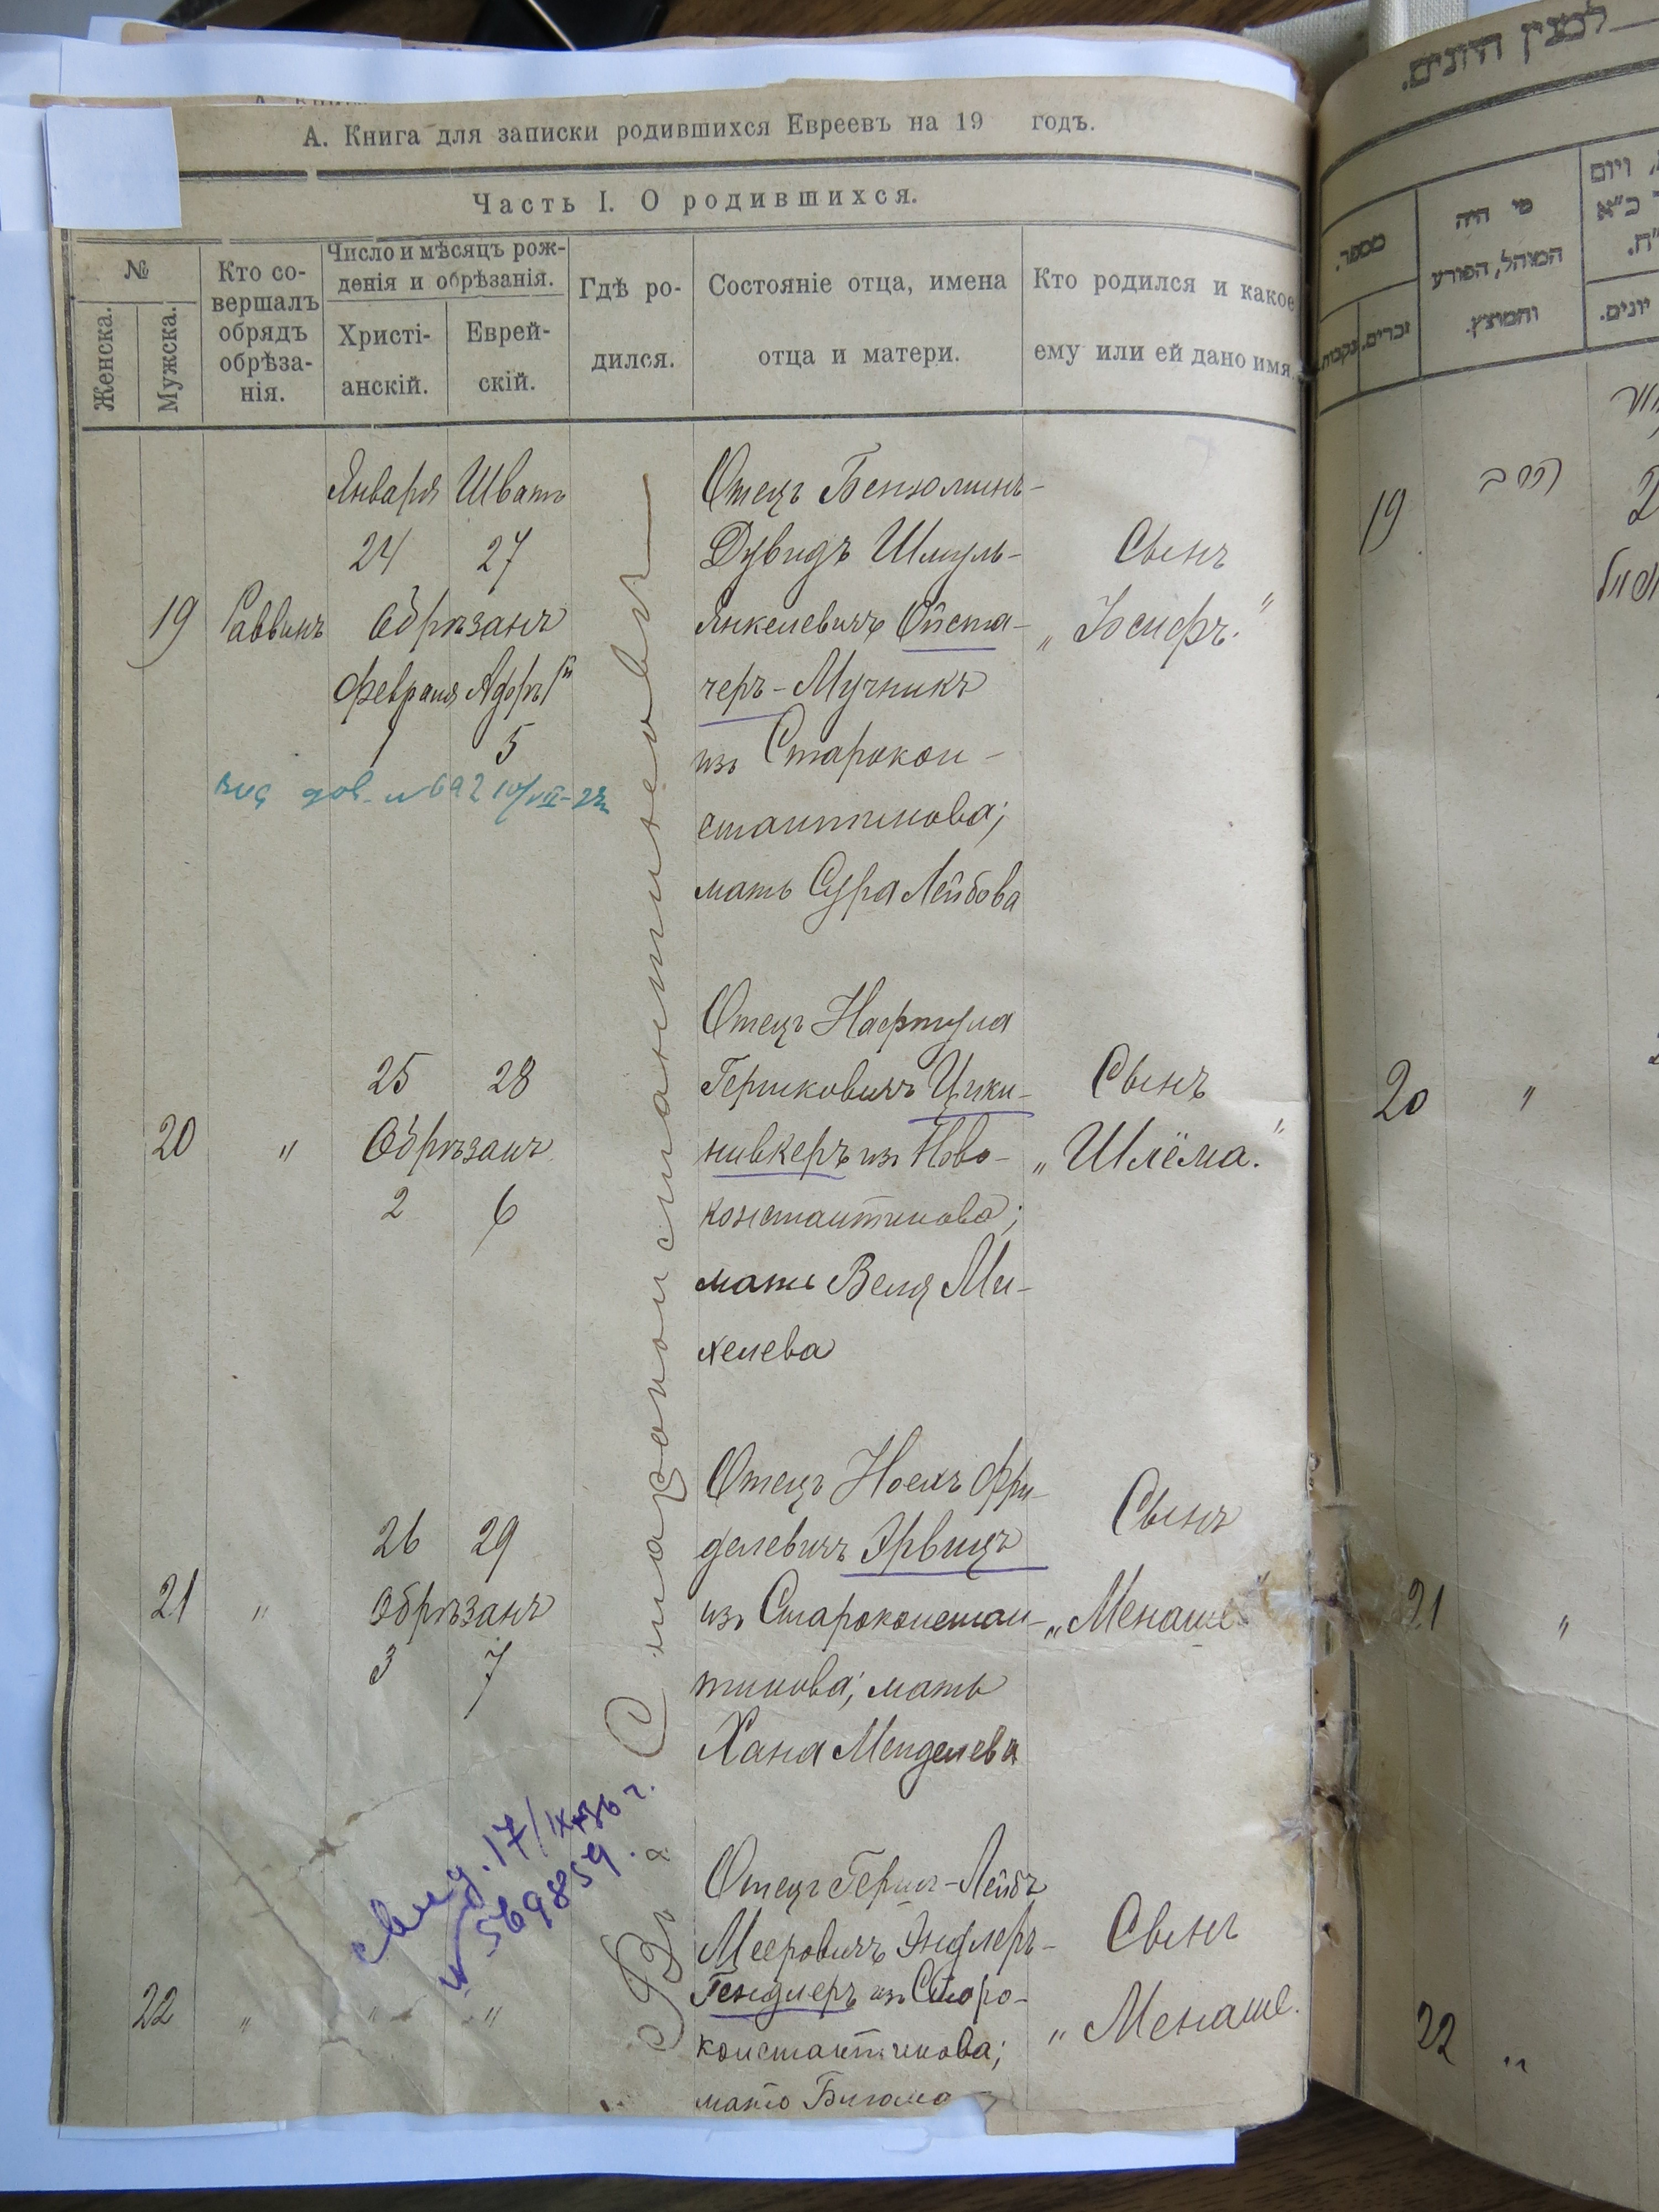 А. Книга для записки родившихся Евреевъ на 19 годъ.
Часть I. О родившихся.
№
Женска.
Мужска.
Кто со-
вершалъ
обрядъ
обрѣза-
нія.
Число и мѣсяцъ рож-
денія и обрѣзанія.
Христі-
анскій.
Еврей-
скій.
Гдѣ ро-
дился.
Состояніе отца, имена
отца и матери.
Кто родился и какое
ему или ей дано имя.
19
Раввинъ
Января Шватъ
24 27
Обрѣзанъ
Февраля Адаръ
1 5
692
Въ Староконстантиновѣ
Отецъ Бенюминъ-
Дувидъ Шмуль-
Янкелевичъ Ойста-
черъ-Мучникъ
изъ Старокон-
стантинова;
мать Сура Лейбова
Сынъ
„Іосифъ."
20
"
25 28
Обрѣзанъ
2 6
Отецъ Нафтула
Гершковичъ Цики-
нивкеръ изъ Ново-
константинова;
мать Веля Ми-
хелева
Сынъ
„Шлёма."
21
"
26 29
Обрѣзанъ
3 7
Отецъ Ноехъ Фри-
делевичъ Эрвицъ
изъ Староконстан-
тинова; мать
Хана Менделева
Сынъ
„Менаше"
свид. 17/IX 36 г.
№ 569859.
22
" " "
Отецъ Гершъ-Лейбъ
Мееровичъ Эндлеръ-
Гендлеръ изъ Старо-
константинова;
мать
Сынъ
„Менаше.
מספר.
זכרים.
נקבות.
מי היה
המוהל, הפורע
והמוצץ.
ויום
יונים.
19
20 "
21 "
22 "